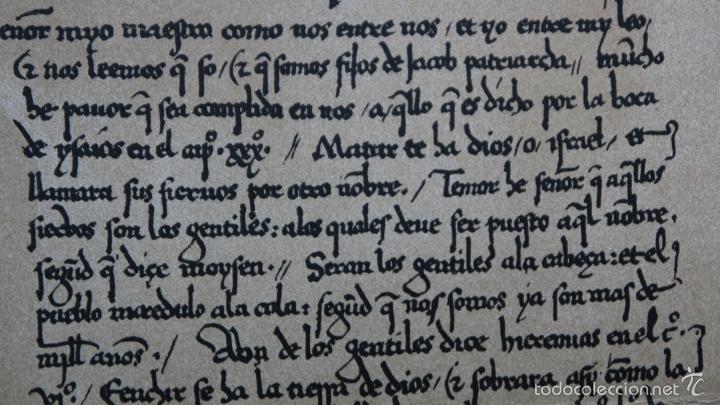 señor myo maestro como nos entre nos / et yo entre my leo /
(& nos leemos q̃ so / (& q̃ somos fijos de Jacob patriarcha // mũcho
he pauor q̃ sea complida en nos / a / q̃llo q̃ es dicho por la boca
de ysaias en el capº. xxxº. // Matar te ha dios / o / israel / et
llamara sus sieruos por otro nõbre. / Temor he señor q̃ aq̃llos
sieruos son los gentiles: alos quales deue ser puesto aq̃l nõbre,
segũd q̃ diçe moysen. // Seran los gentiles ala cabeça: et el
pueblo ala cola: segũd q̃ nos somos ya son mas de
mill anos. / Avn de los gentiles dice hieremias en el cº.
vjº. / Fenchir se ha la tierra de dios / (& sobrara asy cõmo la
todocoleccion.net